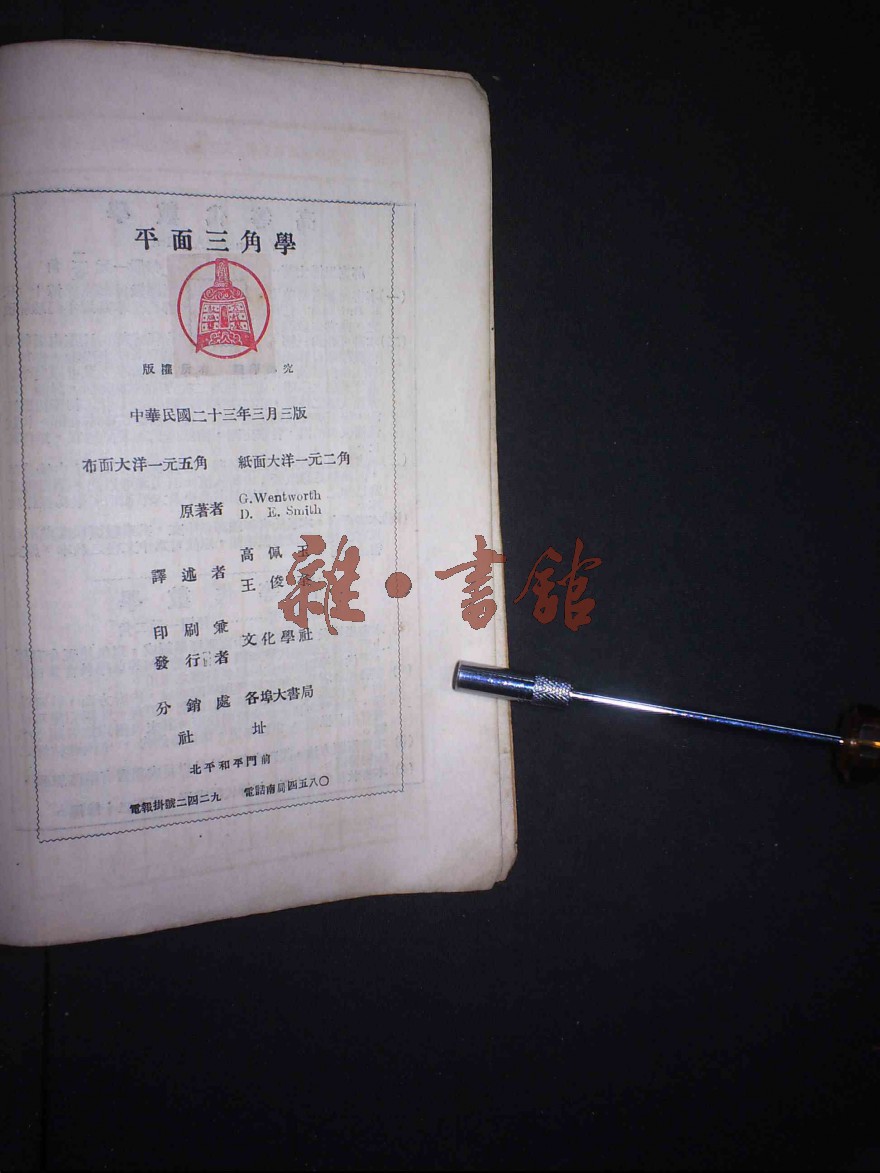 平面三角學
版權 究
中華民國二十三年三月三版
布面大洋一元五角 紙面大洋一元二角
原著者 G. Wentworth
D. E. Smith
譯述者 高佩玉
王俊
印刷兼
發行者 文化學社
分銷處 各埠大書局
社址
北平和平門前
電報掛號二四二九 電話南局四五八〇
雜·書館